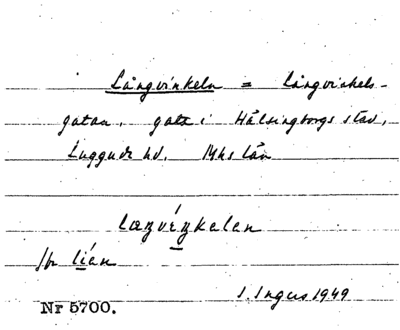 Långvinkeln = Långvinkels-
gatan, gata i Hälsingborgs stad,
Luggude hd. Mhs län
lagvigkelen
fr lien
1949
Nr 5700.